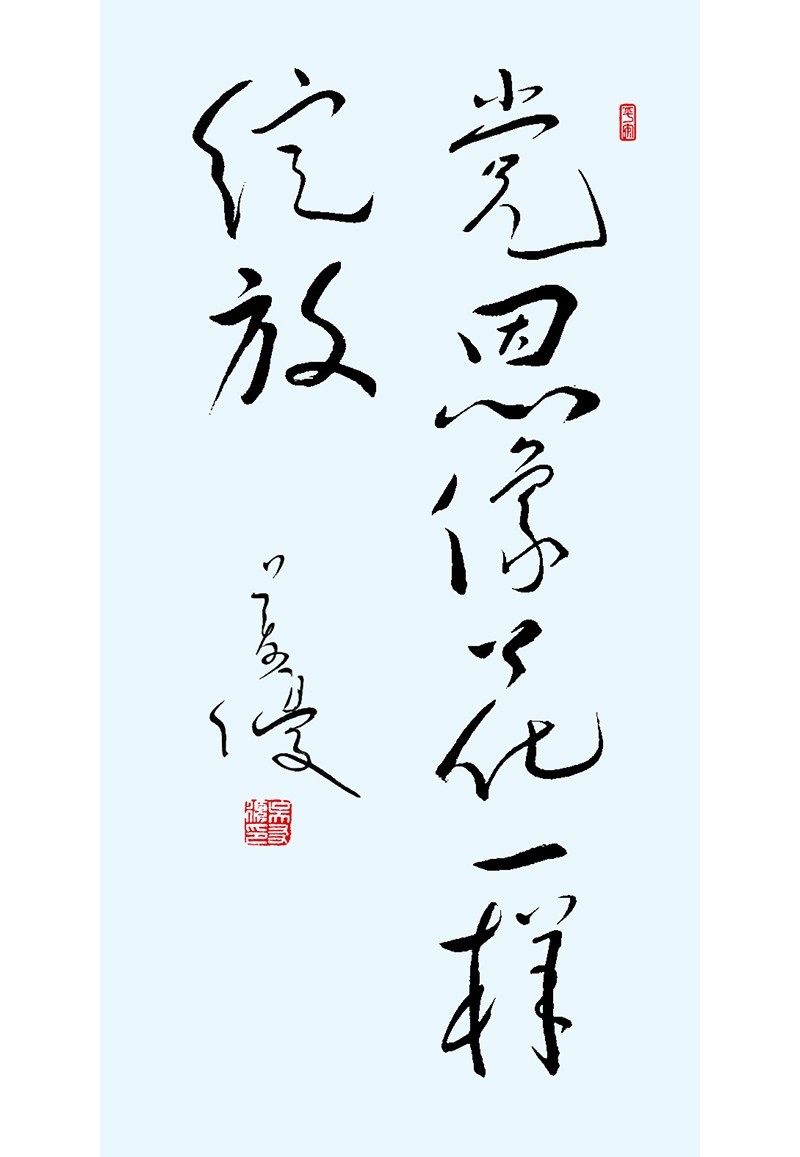 党恩像花一样
绽放